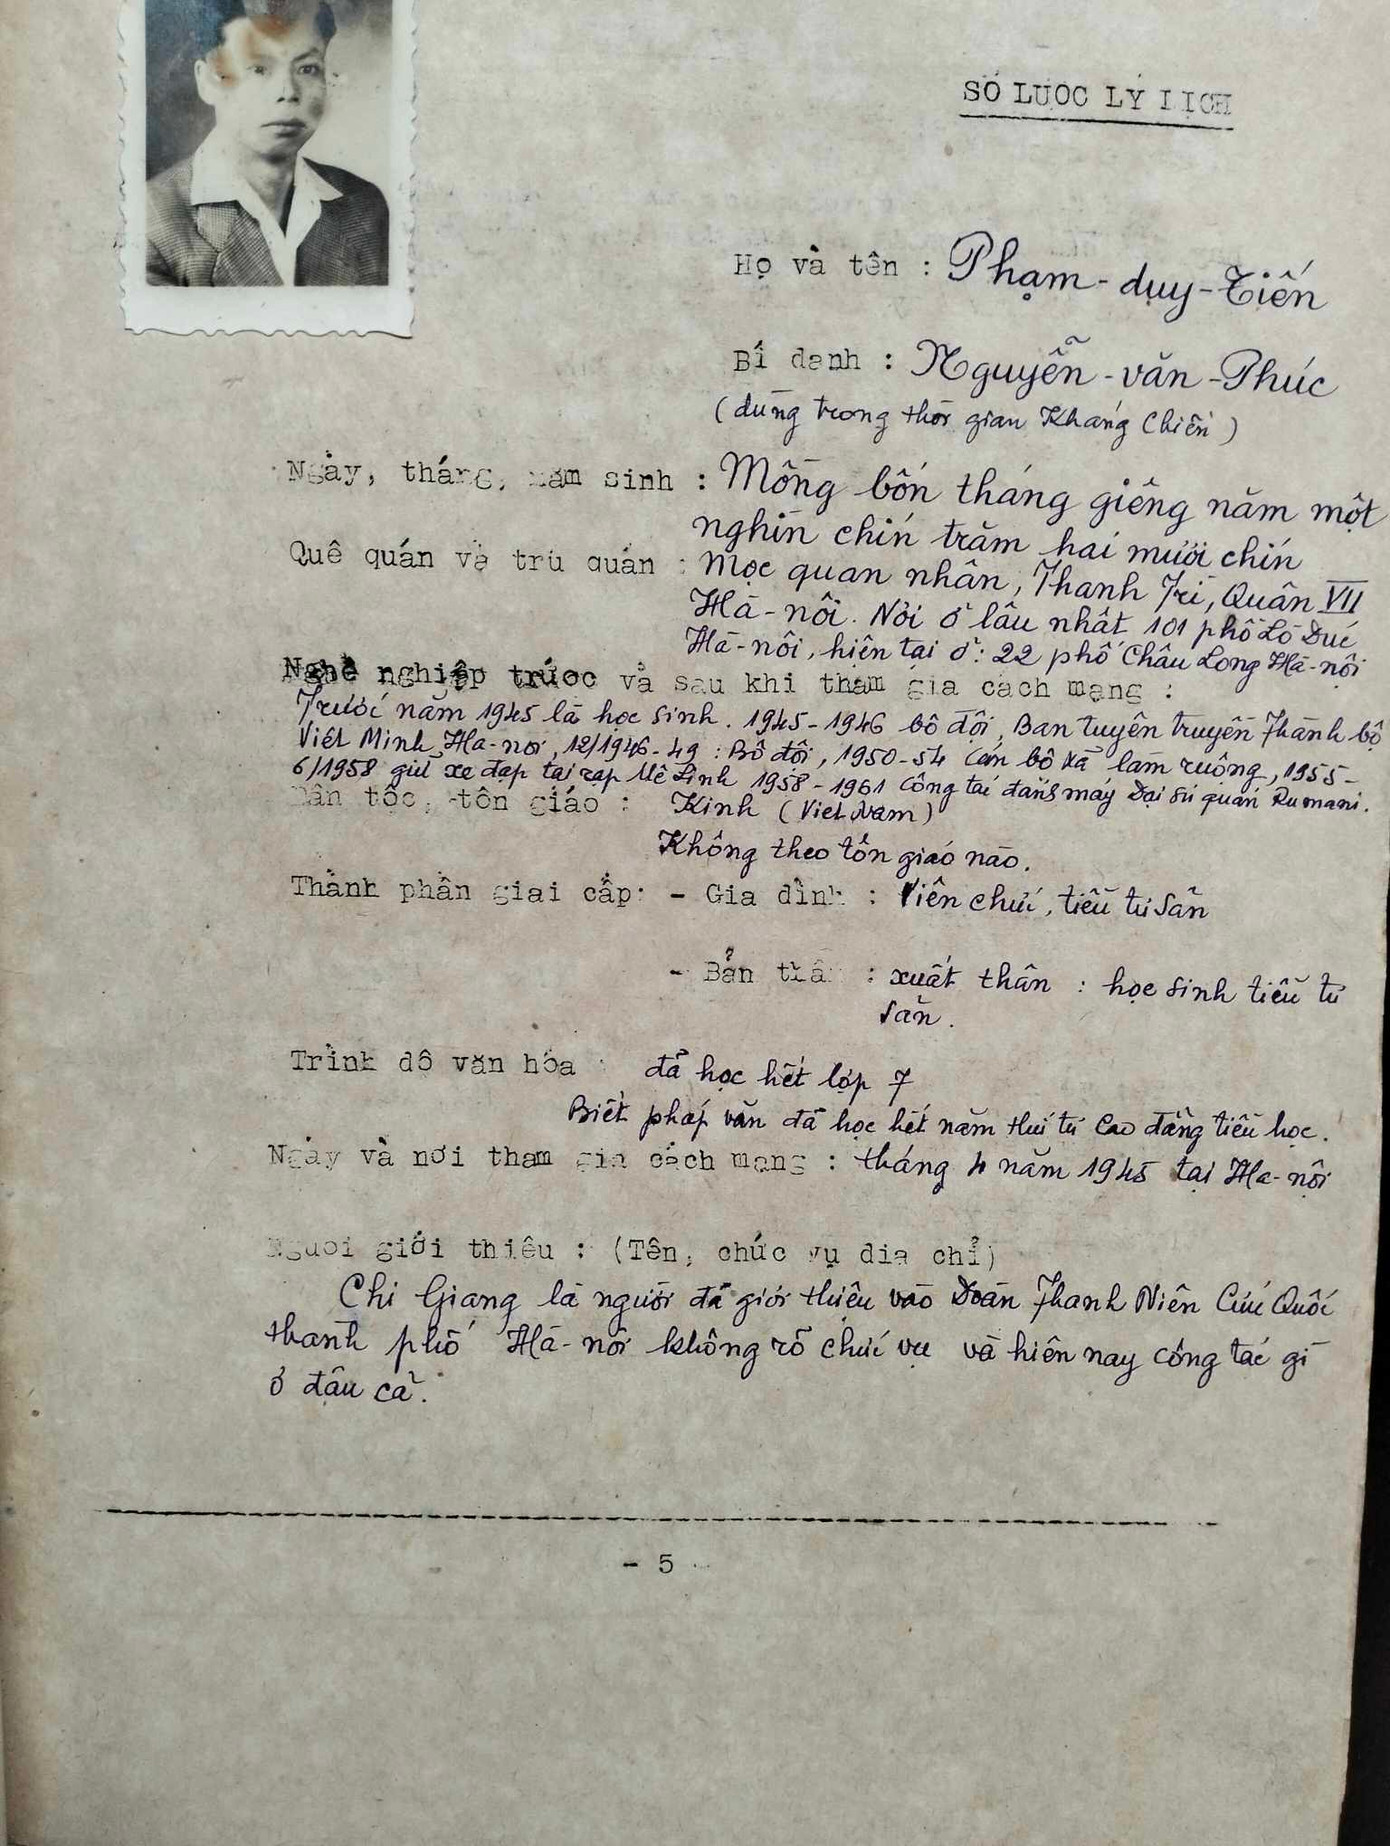 SƠ LƯỢC LÝ LỊCH
Họ và tên : Phạm - duy - Tiến
Bí danh : Nguyễn - văn - Phúc
(dùng trong thời gian Kháng Chiến)
Ngày, tháng, năm sinh : Mồng bốn tháng giêng năm một
nghìn chín trăm hai mươi chín
Quê quán và trú quán : Mọc quan nhân, Thanh Trì, Quận VII
Hà - nội. Nơi ở lâu nhất 101 phố Lò Đúc
Hà - nội, hiện tại ở : 22 phố Châu Long Hà - nội
Nghề nghiệp trước và sau khi tham gia cách mạng :
Trước năm 1945 là học sinh. 1945 - 1946 bộ đội, Ban tuyên truyền Thành bộ
Việt Minh Hà - nội, 12/1946 - 49 : Bộ đội, 1950 - 54 Cán bộ xã làm ruộng, 1955 -
6/1958 giữ xe đạp tại rạp Mê Linh 1958 - 1961 Công tác đánh máy Đại sứ quán Rumani.
Dân tộc, tôn giáo : Kinh (Việt Nam)
Không theo tôn giáo nào.
Thành phần giai cấp: - Gia đình : Viên chức, tiểu tư sản
- Bản thân : xuất thân : học sinh tiểu tư
sản.
Trình độ văn hóa : đã học hết lớp 7
Biết pháp văn đã học hết năm thứ tư Cao đẳng tiểu học.
Ngày và nơi tham gia cách mạng : tháng 4 năm 1945 tại Hà - nội
Người giới thiệu : (Tên, chức vụ địa chỉ)
Chị Giang là người đã giới thiệu vào Đoàn Thanh Niên Cứu Quốc
thành phố Hà - nội không rõ chức vụ và hiện nay công tác gì
ở đâu cả.
- 5 -